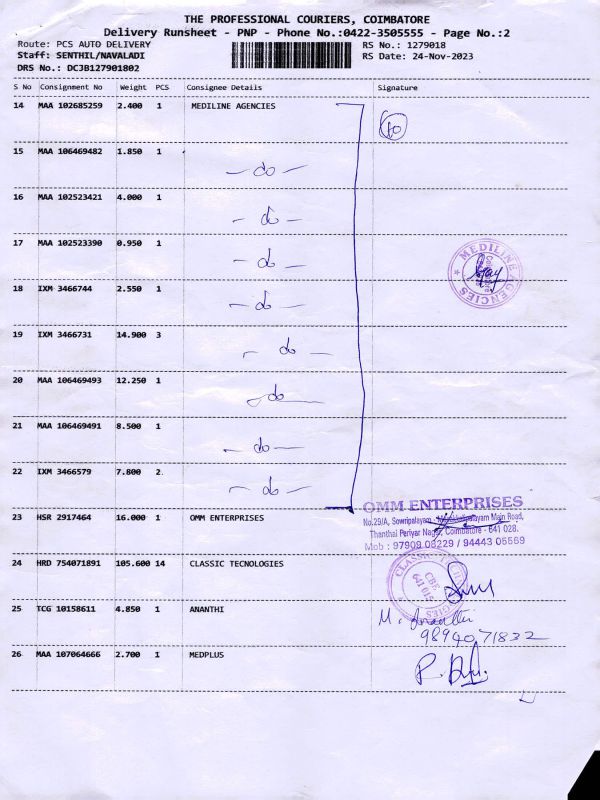 THE PROFESSIONAL COURIERS, COIMBATORE
Delivery Runsheet - PNP - Phone No.:0422-3505555 - Page No.:2
Route: PCS AUTO DELIVERY RS No.: 1279018
Staff: SENTHIL/NAVALADI RS Date: 24-Nov-2023
DRS No.: DCJB127901802
S No Consignment No Weight PCS Consignee Details Signature
14 MAA 102685259 2.400 1 MEDILINE AGENCIES
10
15 MAA 106469482 1.850 1
- do -
16 MAA 102523421 4.000 1
- do -
17 MAA 102523390 0.950 1
- do -
MEDILINE AGENCIES
18 IXM 3466744 2.550 1
- do -
19 IXM 3466731 14.900 3
- do -
20 MAA 106469493 12.250 1
- do -
21 MAA 106469491 8.500 1
- do -
22 IXM 3466579 7.800 2
- do -
OMM ENTERPRISES
23 HSR 2917464 16.000 1 OMM ENTERPRISES
No.29/A, Sowripalayam - Main Road,
Thanthai Periyar Nagar, Coimbatore - 641 028.
Mob : 97909 08229 / 94443 05569
24 HRD 754071891 105.600 14 CLASSIC TECNOLOGIES
CBE
641 015
25 TCG 10158611 4.850 1 ANANTHI
M. Ananthi
9894071832
26 MAA 107064666 2.700 1 MEDPLUS